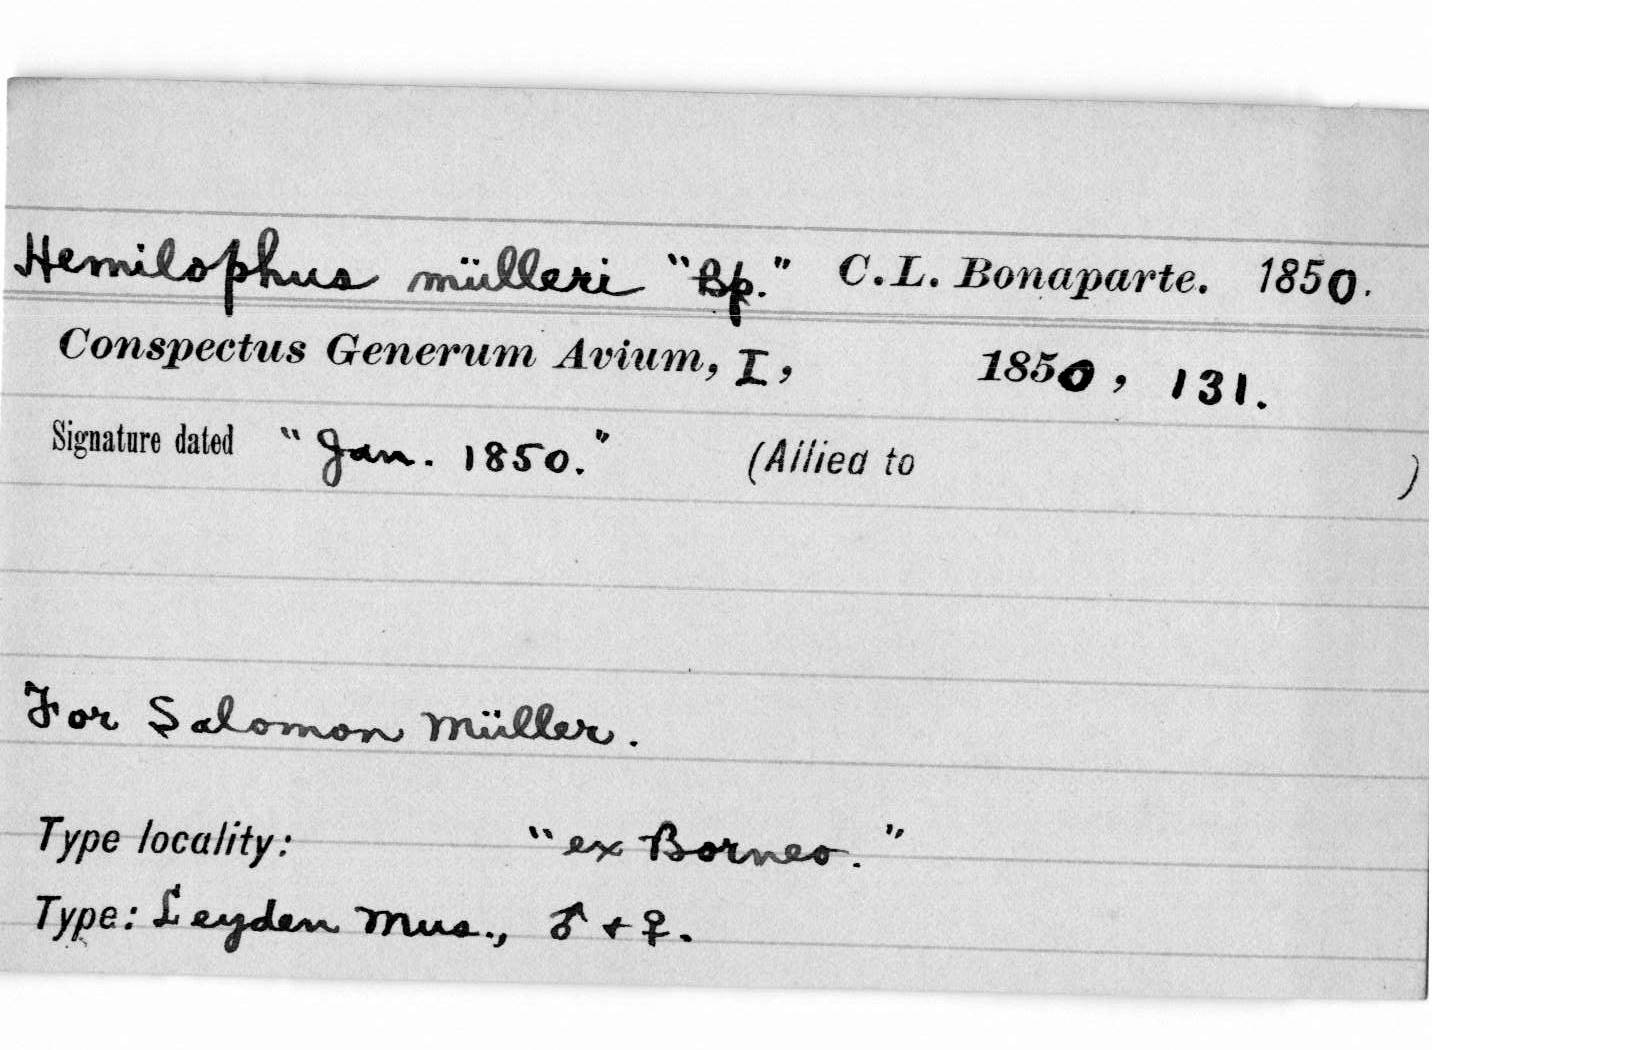 Hemilophus mülleri "Bp." C. L. Bonaparte. 1850.
Conspectus Generum Avium, I, 1850, 131.
Signature dated "Jan. 1850." (Allied to )
For Salomon Müller.
Type locality: "ex Borneo."
Type: Leyden Mus., ♂ + ♀.